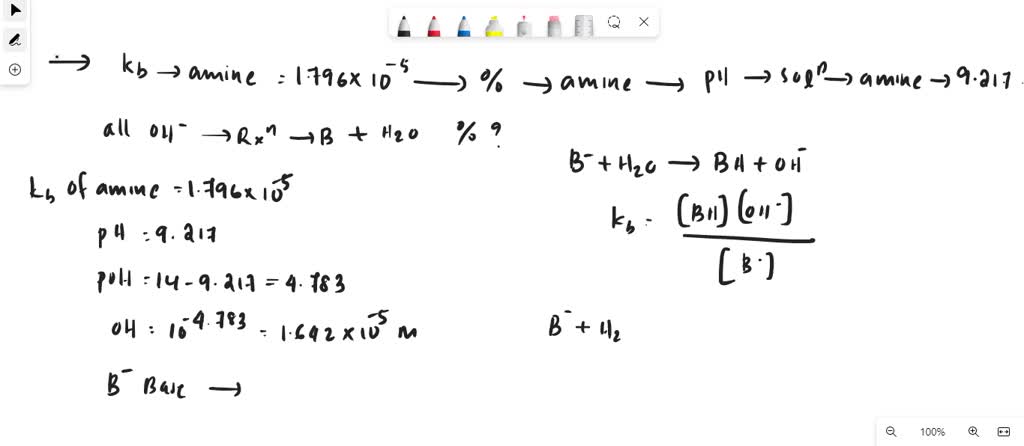 → kb → amine = 1.796 × 10⁻⁵ → % → amine → pH → solⁿ → amine → 9.217
all OH⁻ → Rxⁿ → B + H₂O % ?
kb of amine = 1.796 × 10⁻⁵
pH = 9.217
pOH = 14 - 9.217 = 4.783
OH = 10⁻⁴·⁷⁸³ = 1.642 × 10⁻⁵ M
B⁻ Base →
B⁻ + H₂O → BH + OH⁻
kb = [BH] [OH⁻]
[B⁻]
B⁻ + H₂
100%